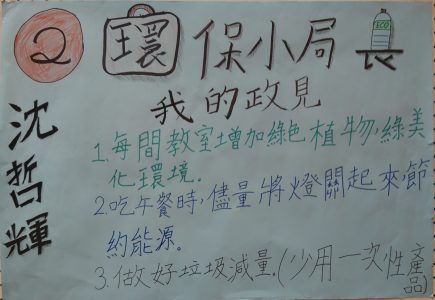 2 環保小局長
ECO
我的政見
沈哲輝
1.每間教室增加綠色植物,綠美
化環境.
2.吃午餐時,儘量將燈關起來,節
約能源。
3.做好垃圾減量.(少用一次性產
品)